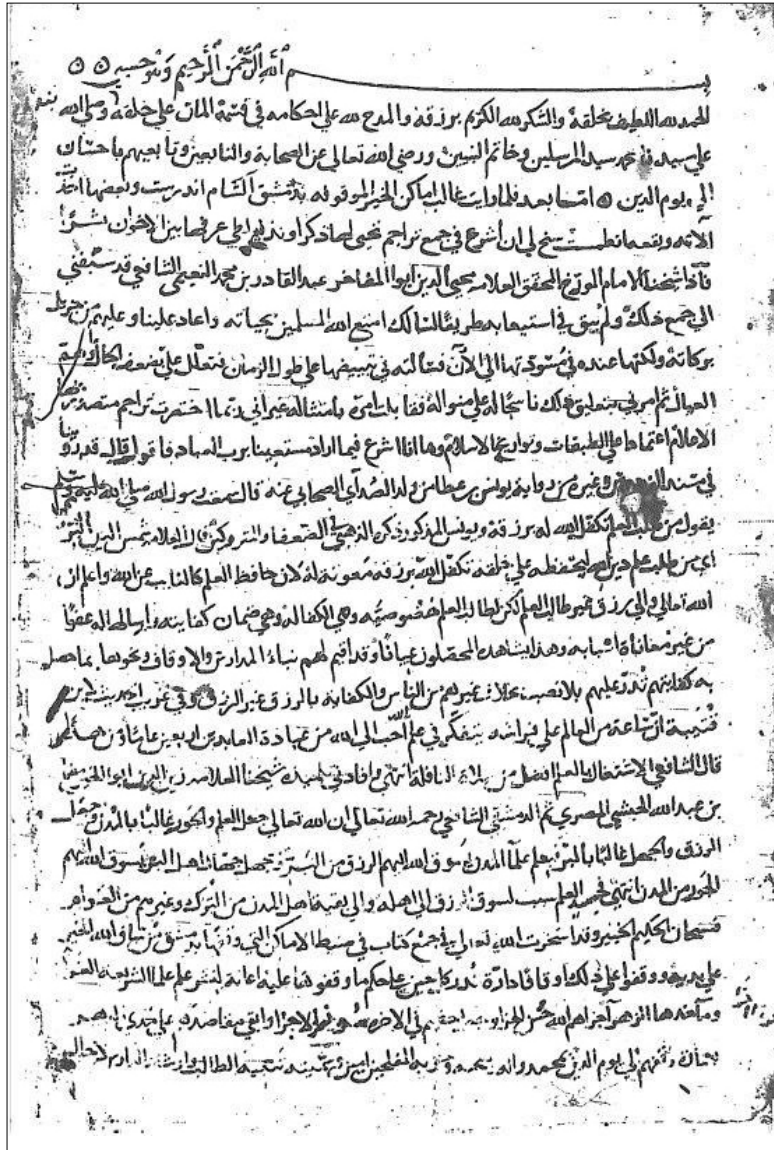 بسم الله الرحمن الرحيم وهو حسبي
الحمد لله اللطيف بخلقه والشكر لله الكريم برزقه والمدح لله علي احكامه في قسمة المال علي خلقه وصلي الله
علي سيدنا محمد سيد المرسلين وخاتم النبيين ورضي الله تعالي عن الصحابة والتابعين وتابعيهم باحسان
الي يوم الدين اما بعد فلما رايت غالب اماكن الخير الموقوفه بدمشق الشام اندرست وبعضها
الآنه وبقعه انطمت سنح لي ان أشرع في جمع تراجم تحيي لها ذكرا بين الاخوان نشرا
فاذا شيخنا الامام المورخ المحقق العلامه محيي الدين ابو المفاخر عبد القادر بن محمد النعيمي الشافعي قد سبقني
الي جمع ذلك ولم يبق في استيعابه طريقا لسالك امتع الله المسلمين بحياته واعاد علينا وعليهم من جزيل
بركاته ولكنها عنده في مسودتها الي الآن فسالته في تبييضها علي طول الزمان فتعلل علي بضعف الحال وهم
العيال ثم امرني بتعليق ذلك ناسجا له علي منواله فقابلت امره بامتثاله غير اني ربما اختصرت تراجم
الاعلام اعتمادا علي الطبقات وتواريخ الاسلام وها انا اشرع فيما اراد مستعينا برب العباد فاقول قال قد روينا
في مسند وغيره من رواية يونس بن عطا من ولد الصدآي الصحابي عنه قال سمعت رسول الله صلي الله عليه وسلم
يقول من طلب العلم تكفل الله له برزقه ويونس المذكور ذكره الذهبي في الضعفا والمتروكين قال العلامه شمس الدين
اي من طلب علم دين الله ليحفظه علي خلقه تكفل الله برزقه معونة له لان حافظ العلم كالنايب عن الله واعلم ان
الله تعالي والي رزق غير طالب العلم لكن لطالب العلم خصوصية وهي الكفاله وهي ضمان كفايته وايصالها له عفوا
من غير معاناة اسبابه وهذا يشاهده المحصلون عيانا وقد اقيم لهم بناء المدارس والاوقاف ونحوها بما حصل
به كفايتهم تدر عليهم بلا نصب بخلاف غيرهم من الناس والكفاية بالرزق غير الرزق وفي غريب الحديث لابن
قتيبة ان ساعة من العالم علي فراشه يتفكر في علم أحب الي الله من عبادة العابد اربعين عاما
قال الشافعي الاشتغال بالعلم افضل من صلاة النافلة انتهي وافادني شيخنا العلامه زين الدين ابو الخير
بن عبد الله الحبشي المصري ثم الدمشقي الشافعي رحمه الله تعالي ان الله تعالي جعل العلم والجور غالبا بالمدن وجعل
الرزق والجهل غالبا بالبر علم علما المدن يسوق الله اليهم الرزق من البر جهل اهل البر يسوق الله اليهم
الجور من المدن انتهي العلم سبب لسوق الرزق الي اهله والي بقية اهل المدن من الترك وغيرهم من
فسبحان الحكيم الخبير وقد استخرت الله تعالي في جمع كتاب في ضبط الاماكن التي بدمشق الله
علي يديه ووقفوا علي ذلك اوقافا دارة تدر كل حين علي حكم ما وقفوها عليه اعانة لنشر علم علما الشريعه
اجزاهم الله حسن الجزا في الاخره
الي يوم الدين بمحمد واله الطالب